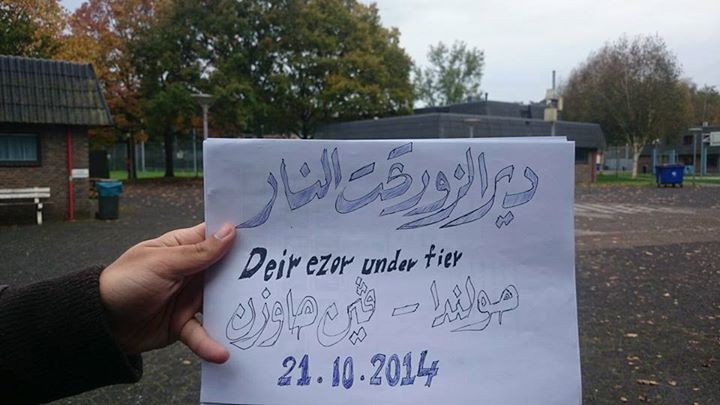 دير الزور تحت النار
Deir ezor under fier
هولندا - ڤين هاوزن
21.10.2014